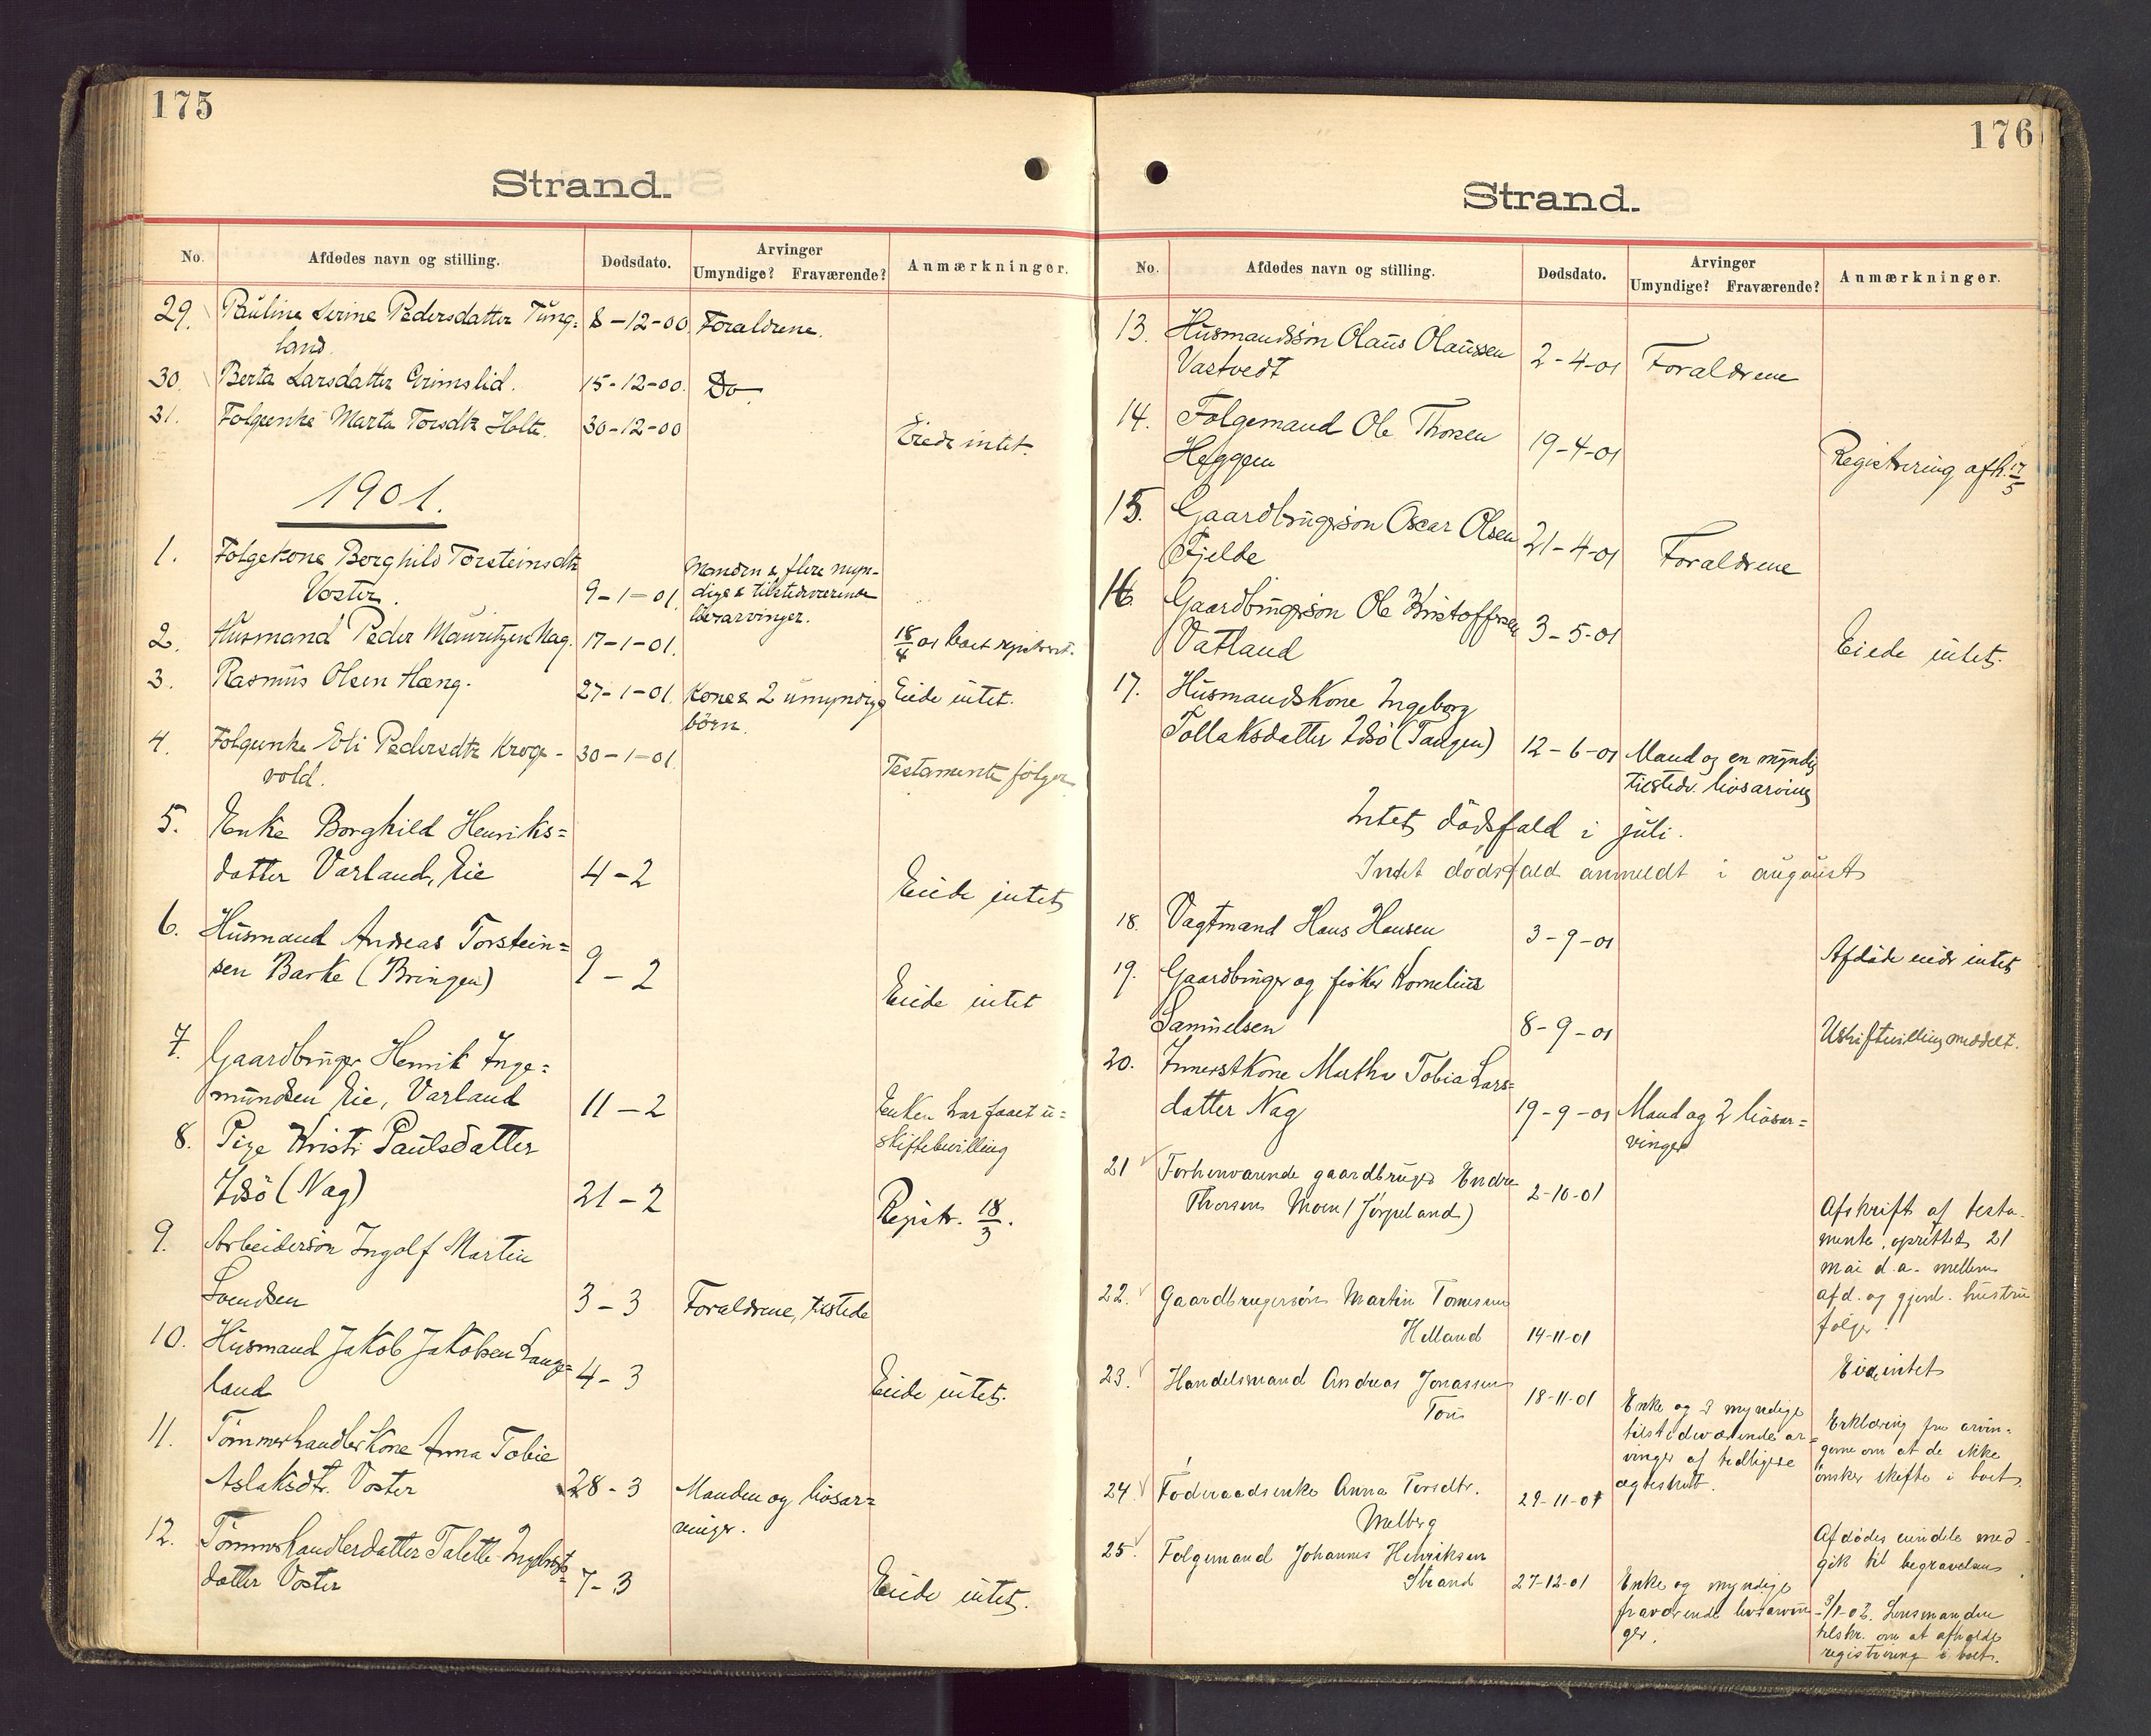 175
Strand.
No.
Afdødes navn og stilling.
Dødsdato.
Arvinger
Umyndige? Fraværende?
Anmærkninger.
29. Pauline Serine Pedersdatter Tung= 8-12-00 Foraldrene.
land.
30. Berta Larsdatter Grimslid. 15-12-00. Do
31. Folgeenke Marta Torsdtr Holte. 30-12-00
Eiede intet.
1901.
1. Folgekone Borghild Torsteinsdtr
Manden & flere myn-
Voster. 9-1-01. dige & tilstedeværende
livsarvinger.
2. Husmand Peder Mauritzen Nag. 17-1-01. 18/4 01 boet registrert.
3. Rasmus Olsen Hæng. 27-1-01. Kone & 2 umyndige Eiede intet.
børn.
4. Folgeenke Eli Pedersdtr Kroge- 30-1-01. Testamente følger
vold.
5. Enke Borghild Henriks=
datter Varland, Eie 4-2 Eiede intet
6. Husmand Andreas Torstein=
sen Barke (Bringen) 9-2
Eiede intet
7. Gaardbruger Henrik Inge=
mundsen Eie, Varland 11-2 Enken har faaet u=
skiftebevilling
8. Pige Kristi Paulsdatter
Idsø (Nag) 21-2 Registr. 18/3.
9. Arbeidersøn Ingolf Martin
Svendsen 3-3 Foraldrene, tilstede
10. Husmand Jakob Jakobsen Lange= 4-3 Eiede intet.
land
11. Tømmerhandlerkone Anna Tobie
Aslaksdtr. Voster 28-3 Manden og livsar=
vinger.
12. Tømmerhandlerdatter Talette Ingebrets=
datter Voster 7-3 Eiede intet.
176
Strand.
No.
Afdødes navn og stilling.
Dødsdato.
Arvinger
Umyndige? Fraværende?
Anmærkninger.
13. Husmandssøn Olaus Olaussen
Vastvedt 2-4-01 Foraldrene
14. Folgemand Ole Thorsen
Heggem 19-4-01 Registrering afh. 17/5
15. Gaardbrugersøn Oscar Olsen 21-4-01 Foraldrene
Fjelde
16. Gaardbrugersøn Ole Kristoffersen 3-5-01
Vatland Eiede intet.
17. Husmandskone Ingeborg
Tollaksdatter Idsø (Tangen) 12-6-01 Mand og en myndig
tilstedv. livsarving
Intet dødsfald i juli.
Intet dødsfald anmeldt i august
18. Vagtmand Hans Hansen 3-9-01 Afdøde eiede intet
19. Gaardbruger og fisker Kornelius
Samuelsen 8-9-01 Uskiftevilling meddelt.
20. Innerstkone Martha Tobia Lars=
datter Nag 19-9-01 Mand og 2 livsar=
vinger
21 Forhenværende gaardbruger Endre
Thorsen Moen (Jørpeland) 2-10-01
Afskrift af testa-
mente, oprettet 21
mai d.a. mellem
afd. og gjenl. hustru
følger.
22. Gaardbrugersøn Martin Tonnesen
Helland 14-11-01
Eiede intet
23. Handelsmand Andreas Jonassen
Tou 18-11-01 Enke og 3 myndige
tilstedeværende ar=
vinger af tidligere
ægteskab.
Erklæring fra arvin-
gerne om at de ikke
ønsker skifte i boet.
24. Føderaadsenke Anna Torsdtr.
Melberg 29-11-01
Afdødes eiendele med-
gik til begravelsen.
25. Folgemand Johannes Henriksen
Strand 27-12-01 Enke og myndige
fraværende livsarvin=
ger.
3/1-02. Lensmanden
tilskr. om at afholde
registrering i boet.